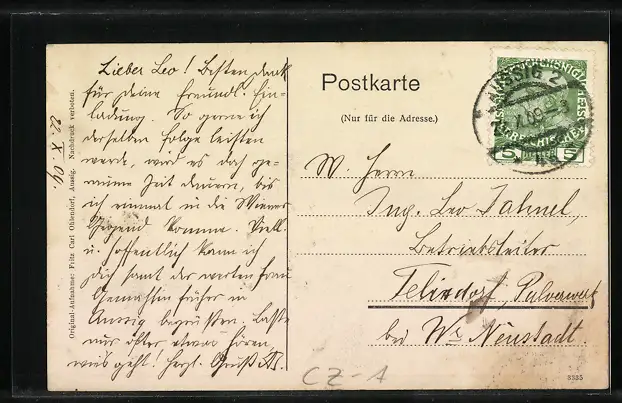 Lieber Leo! Besten Dank
für deine freundl. Ein-
ladung. So gerne ich
derselben Folge leisten
werde, wird es doch ge-
raume Zeit dauern, bis
ich einmal in die Wiener
Gegend komme. Viell.
u. hoffentlich kann ich
dich samt der werten Frau
Gemahlin früher in
Aussig begrüßen. Lasse
nur öfter etwas hören,
wie's geht! Herzl. Gruß
22. X. 09.
Original-Aufnahme: Fritz Carl Ohlendorf, Aussig. Nachdruck verboten.
Postkarte
(Nur für die Adresse.)
AUSSIG 2
5 5
W. Herrn
Ing. Leo Jahnel,
Betriebsleiter
Felixdorf, Pulverwerk
bei Wr Neustadt.
CZ-A
3335